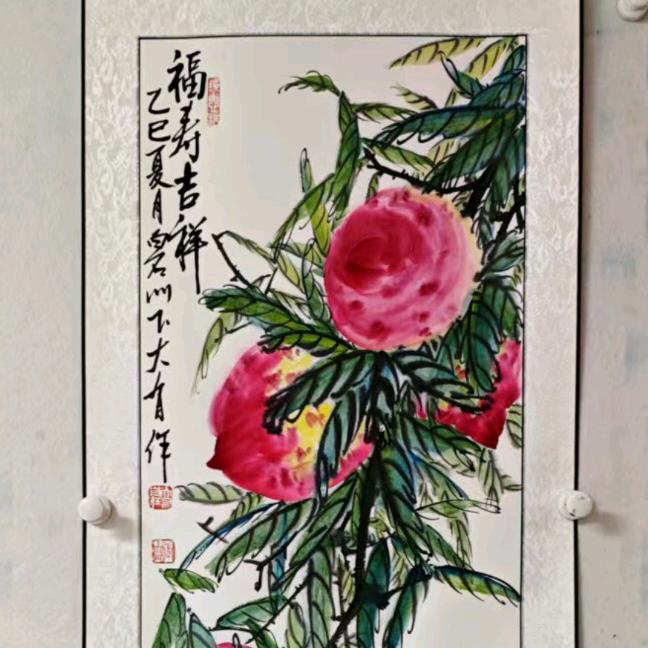 福寿吉祥
乙巳夏月白石门下大有作